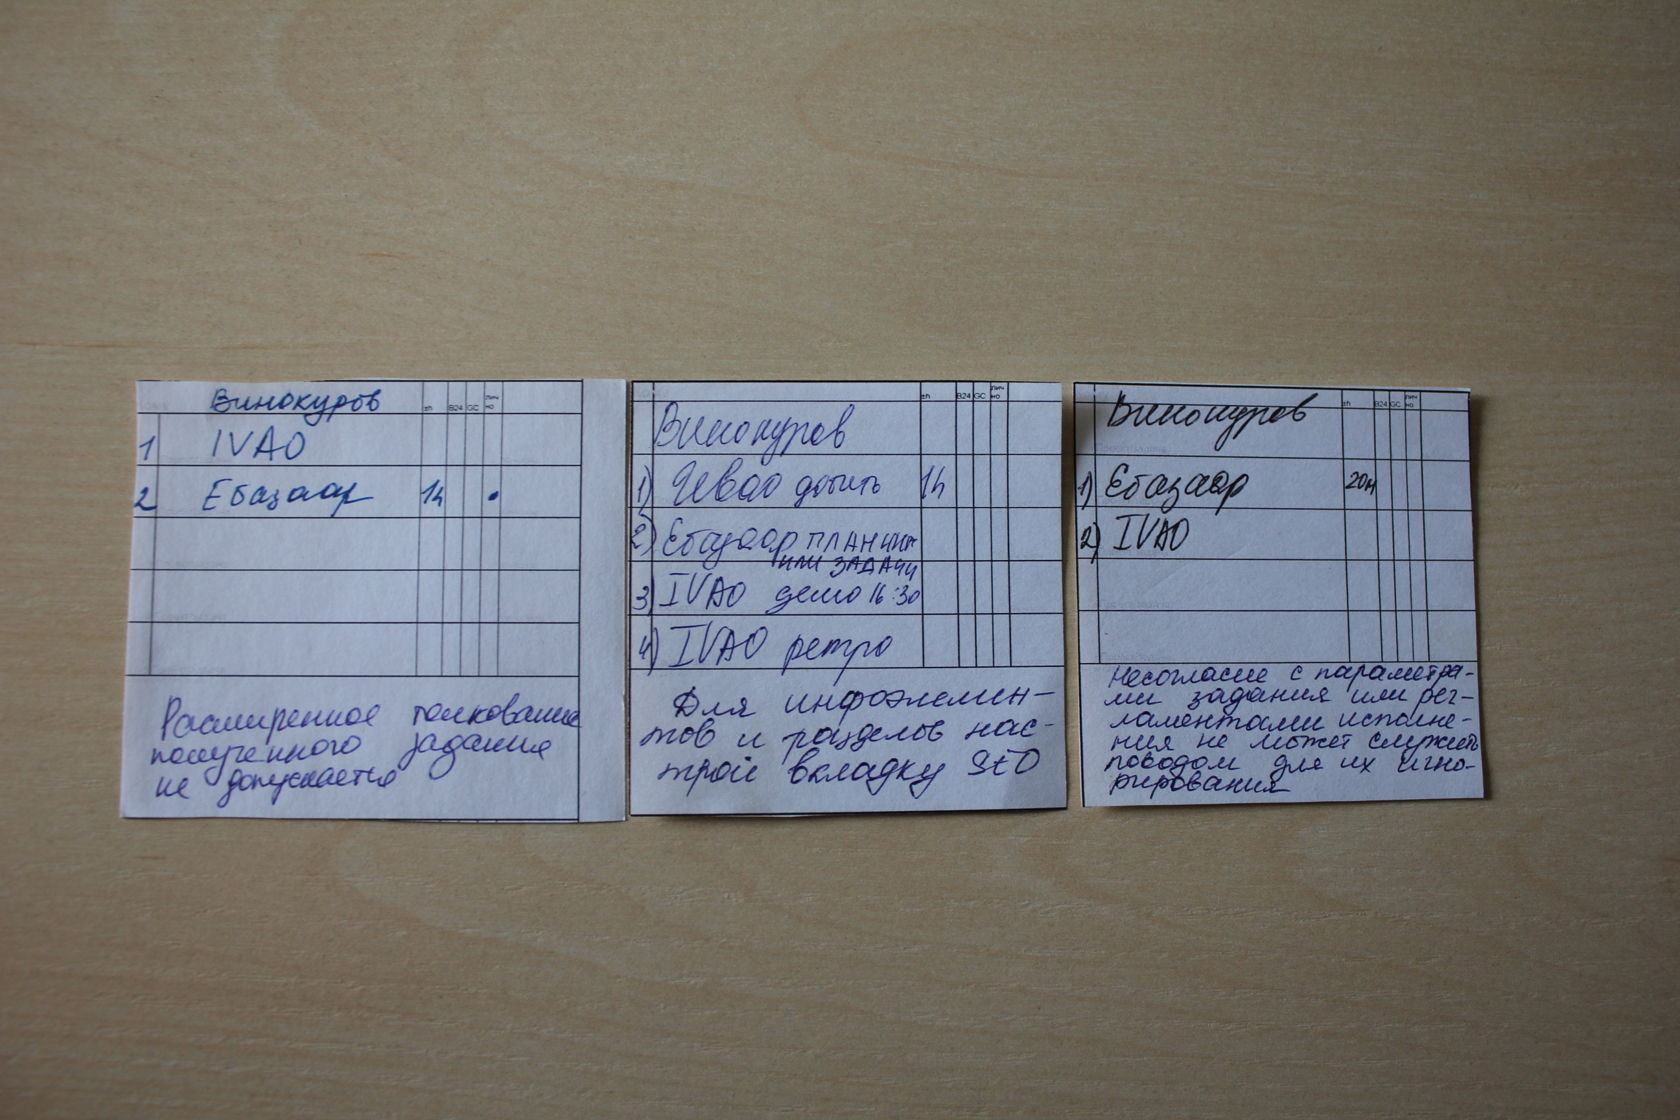 Винокуров
±h B24 GC лич но
1 IVAO
2 Ебазаар 1h •
Расширенное толкование
полученного задания
не допускается
±h B24 GC лич но
Винокуров
1) Ивао добить 1h
2) Ебазаар ПЛАНИНГ
ИЛИ ЗАДАЧИ
3) IVAO демо 16:30
4) IVAO ретро
Для инфоэлемен-
тов и разделов нас-
трой вкладку SEO
±h B24 GC лич но
Винокуров
1) Ебазаар 20м
2) IVAO
Несогласие с параметра-
ми задания или рег-
ламентами исполне-
ния не может служить
поводом для их игно-
рирования